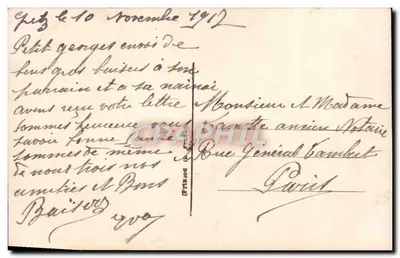 le 10 Novembre 1917
Petit georges envoi de
bons gros baisers à son
parrain et a sa
avons recu votre lettre
sommes heureux vous
savoir bonne santé
sommes de même
de nous trois nos
amitiés et Bons
Baisers
Monsieur & Madame
ancien Notaire
Rue Général Lambert
Paris
CPAPHIL